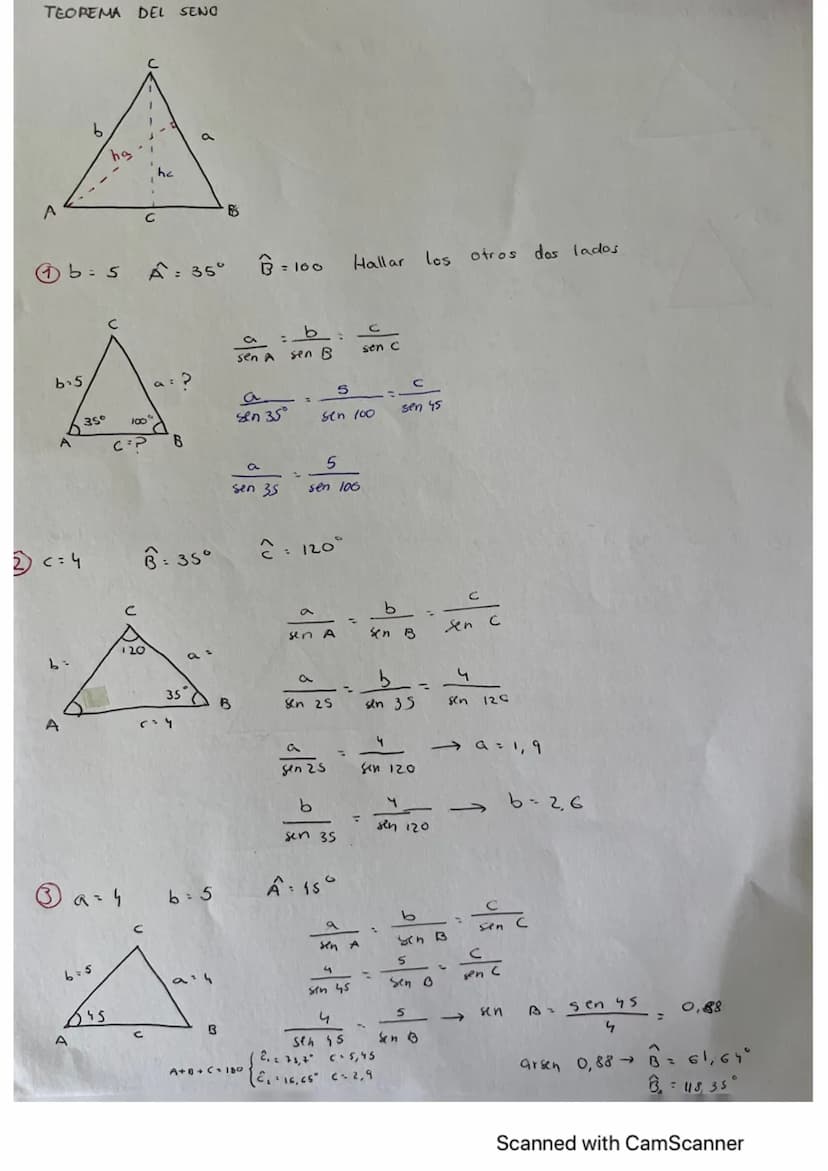 TEOREMA DEL SENO
C
b
a
ha
hc
A
B
C
① b = 5 Â = 35° B̂ = 100 Hallar los otros dos lados
C
b=5
a = ?
35°
100°
A
C = ?
B
a/sen A = b/sen B = c/sen C
a/sen 35° = 5/sen 100 = c/sen 45
a/sen 35 = 5/sen 100
② c = 4 B̂ = 35° Ĉ = 120°
C
120
b =
a =
35°
A
c = 4
B
a/sen A = b/sen B = c/sen C
a/sen 25 = b/sen 35 = 4/sen 120
a/sen 25 = 4/sen 120 → a = 1,9
b/sen 35 = 4/sen 120 → b = 2,6
③ a = 4 b = 5 Â = 45°
C
b = 5
a = 4
45
A
c
B
a/sen A = b/sen B = c/sen C
4/sen 45 = 5/sen B = c/sen C
4/sen 45 = 5/sen B → sen B = sen 45/4 = 0,88
A+B+C=180 { c = 5,45
= 16,65° c = 2,9
arsen 0,88 → B̂ = 61,64°
B̂ = 118,35°
Scanned with CamScanner